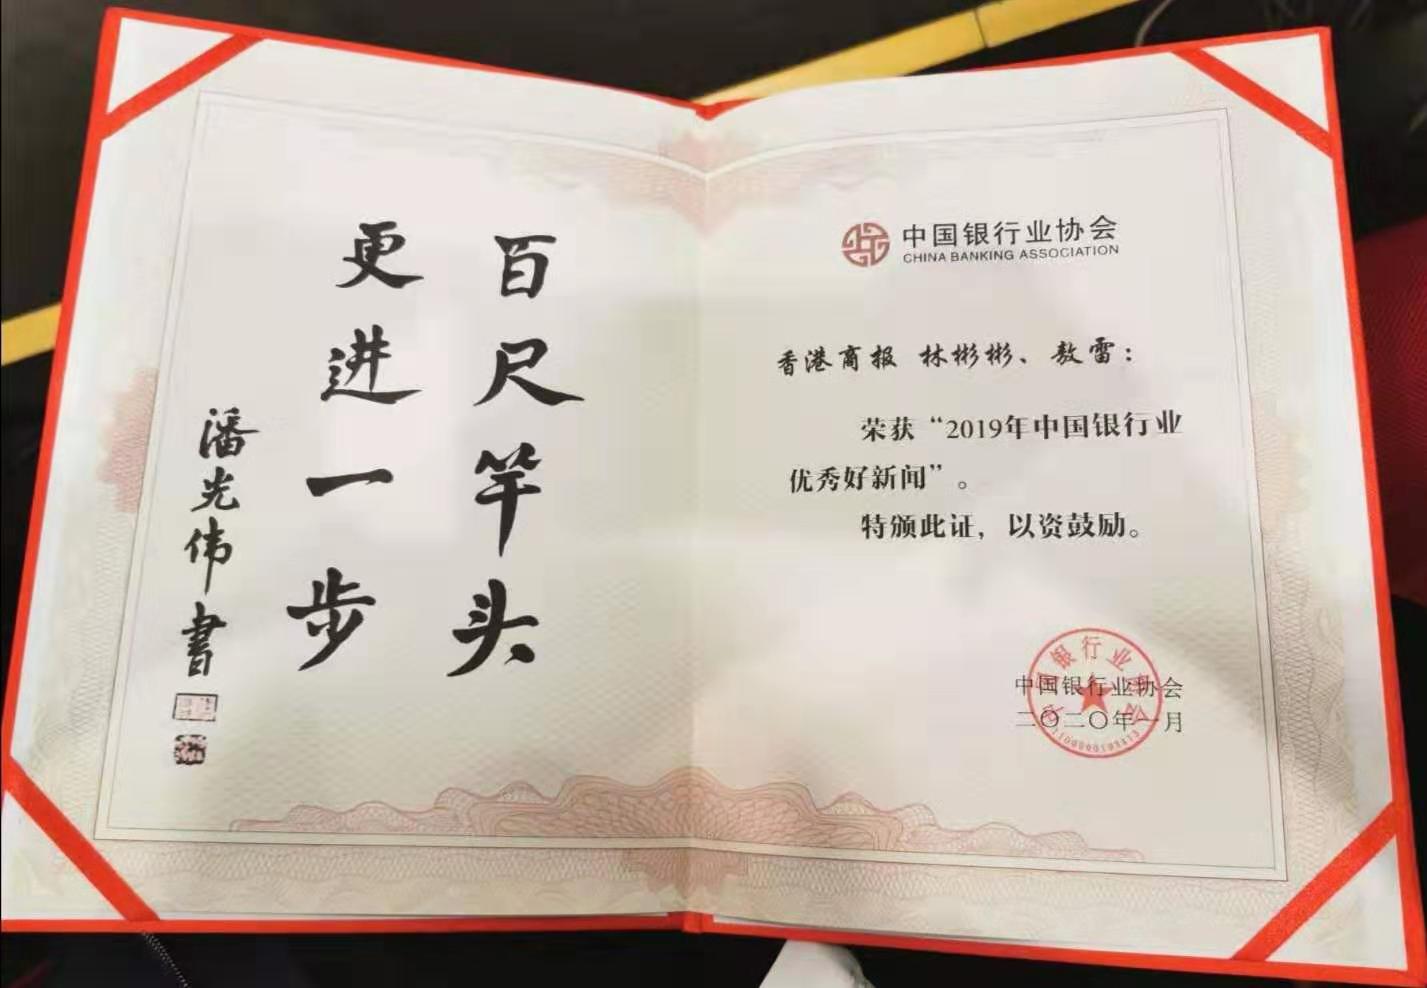 百尺竿头
更进一步
潘光伟書
中国银行业协会
CHINA BANKING ASSOCIATION
香港商报 林彬彬、敖雷：
荣获“2019年中国银行业
优秀好新闻”。
特颁此证，以资鼓励。
中国银行业协会
二〇二〇年一月
中国银行业协会